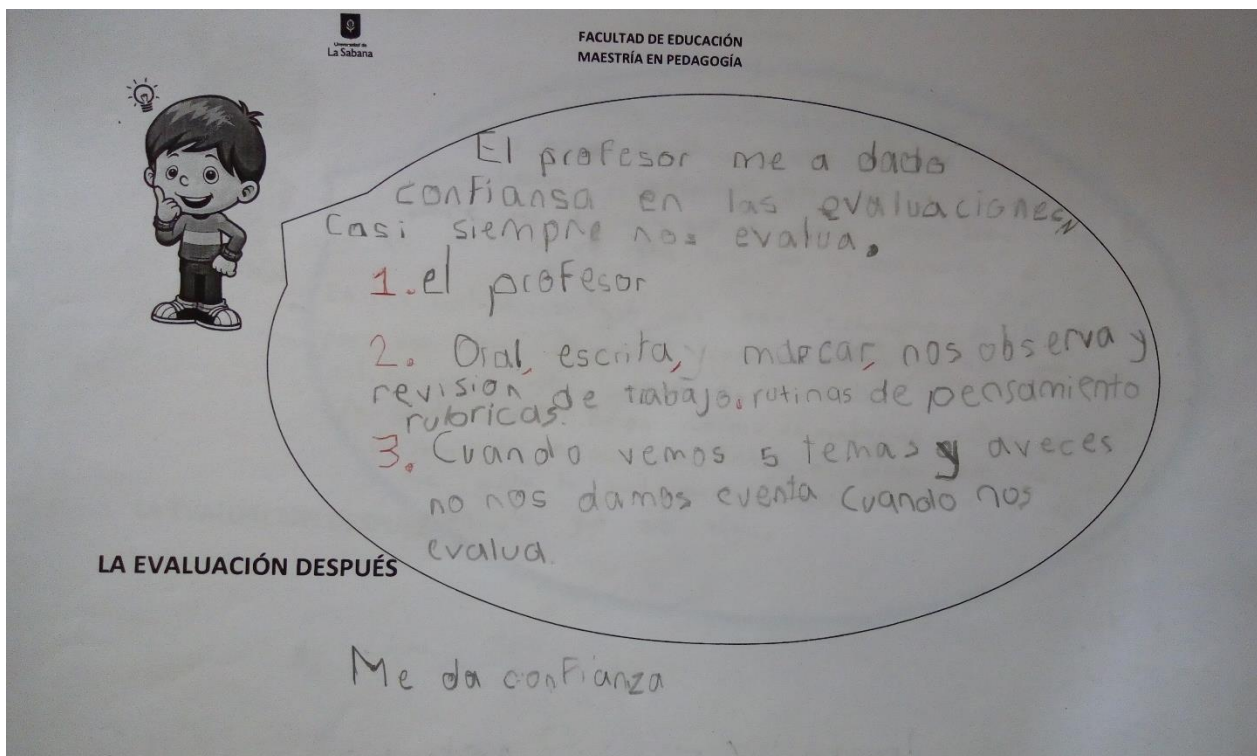 Universidad de
La Sabana
FACULTAD DE EDUCACIÓN
MAESTRÍA EN PEDAGOGÍA
El profesor me a dado
confiansa en las evaluaciones
Casi siempre nos evalua.
1. el profesor
2. Oral, escrita, y marcar, nos observa y
revision de trabajo. rutinas de pensamiento
rubricas.
3. Cuando vemos 5 temas y aveces
no nos damos cuenta cuando nos
evalua.
LA EVALUACIÓN DESPUÉS
Me da confianza